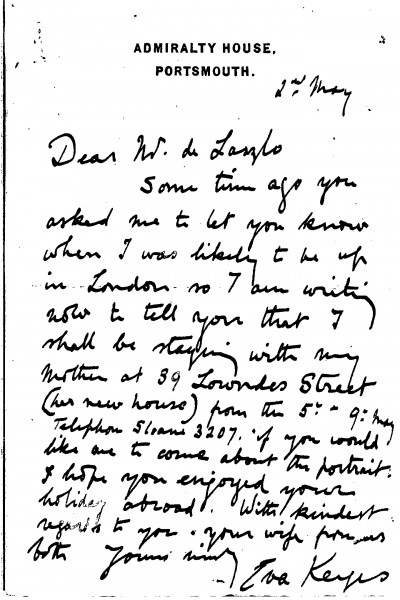 ADMIRALTY HOUSE,
PORTSMOUTH.
2nd May
Dear Mr. de Laszlo
Some time ago you
asked me to let you know
when I was likely to be up
in London so I am writing
now to tell you that I
shall be staying with my
mother at 39 Lowndes Street
(her new house) from the 5th - 9th May
Telephone Sloane 3207. if you would
like me to come about the portrait.
I hope you enjoyed your
holiday abroad. With kindest
regards to you & your wife from us
both Yours sincly
Eva Keyes